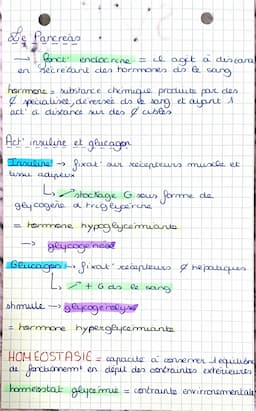 Le Pancréas
→ fonct° endocrine = il agit à distance
en sécrétant des hormones ds le sang
hormone = substance chimique produite par des
¢ spécialisées, déversée ds le sang et ayant 1
act° à distance sur des ¢ cibles
Act° insuline et glucagon
Insuline → fixat° sur récepteurs muscle et
tissu adipeux
↳ ↗ stockage G sous forme de
glycogène et triglycérine
= hormone hypoglycémiante
→ glycogenèse
Glucagon → fixat° récepteurs ¢ hépatiques
↳ ↗ + G ds le sang
stimule → glycogénolyse
= hormone hyperglycémiante
HOMÉOSTASIE = capacité à conserver l'équilibre
de fonctionnement en dépit des contraintes extérieures
homéostat glycémie = contrainte environnementale